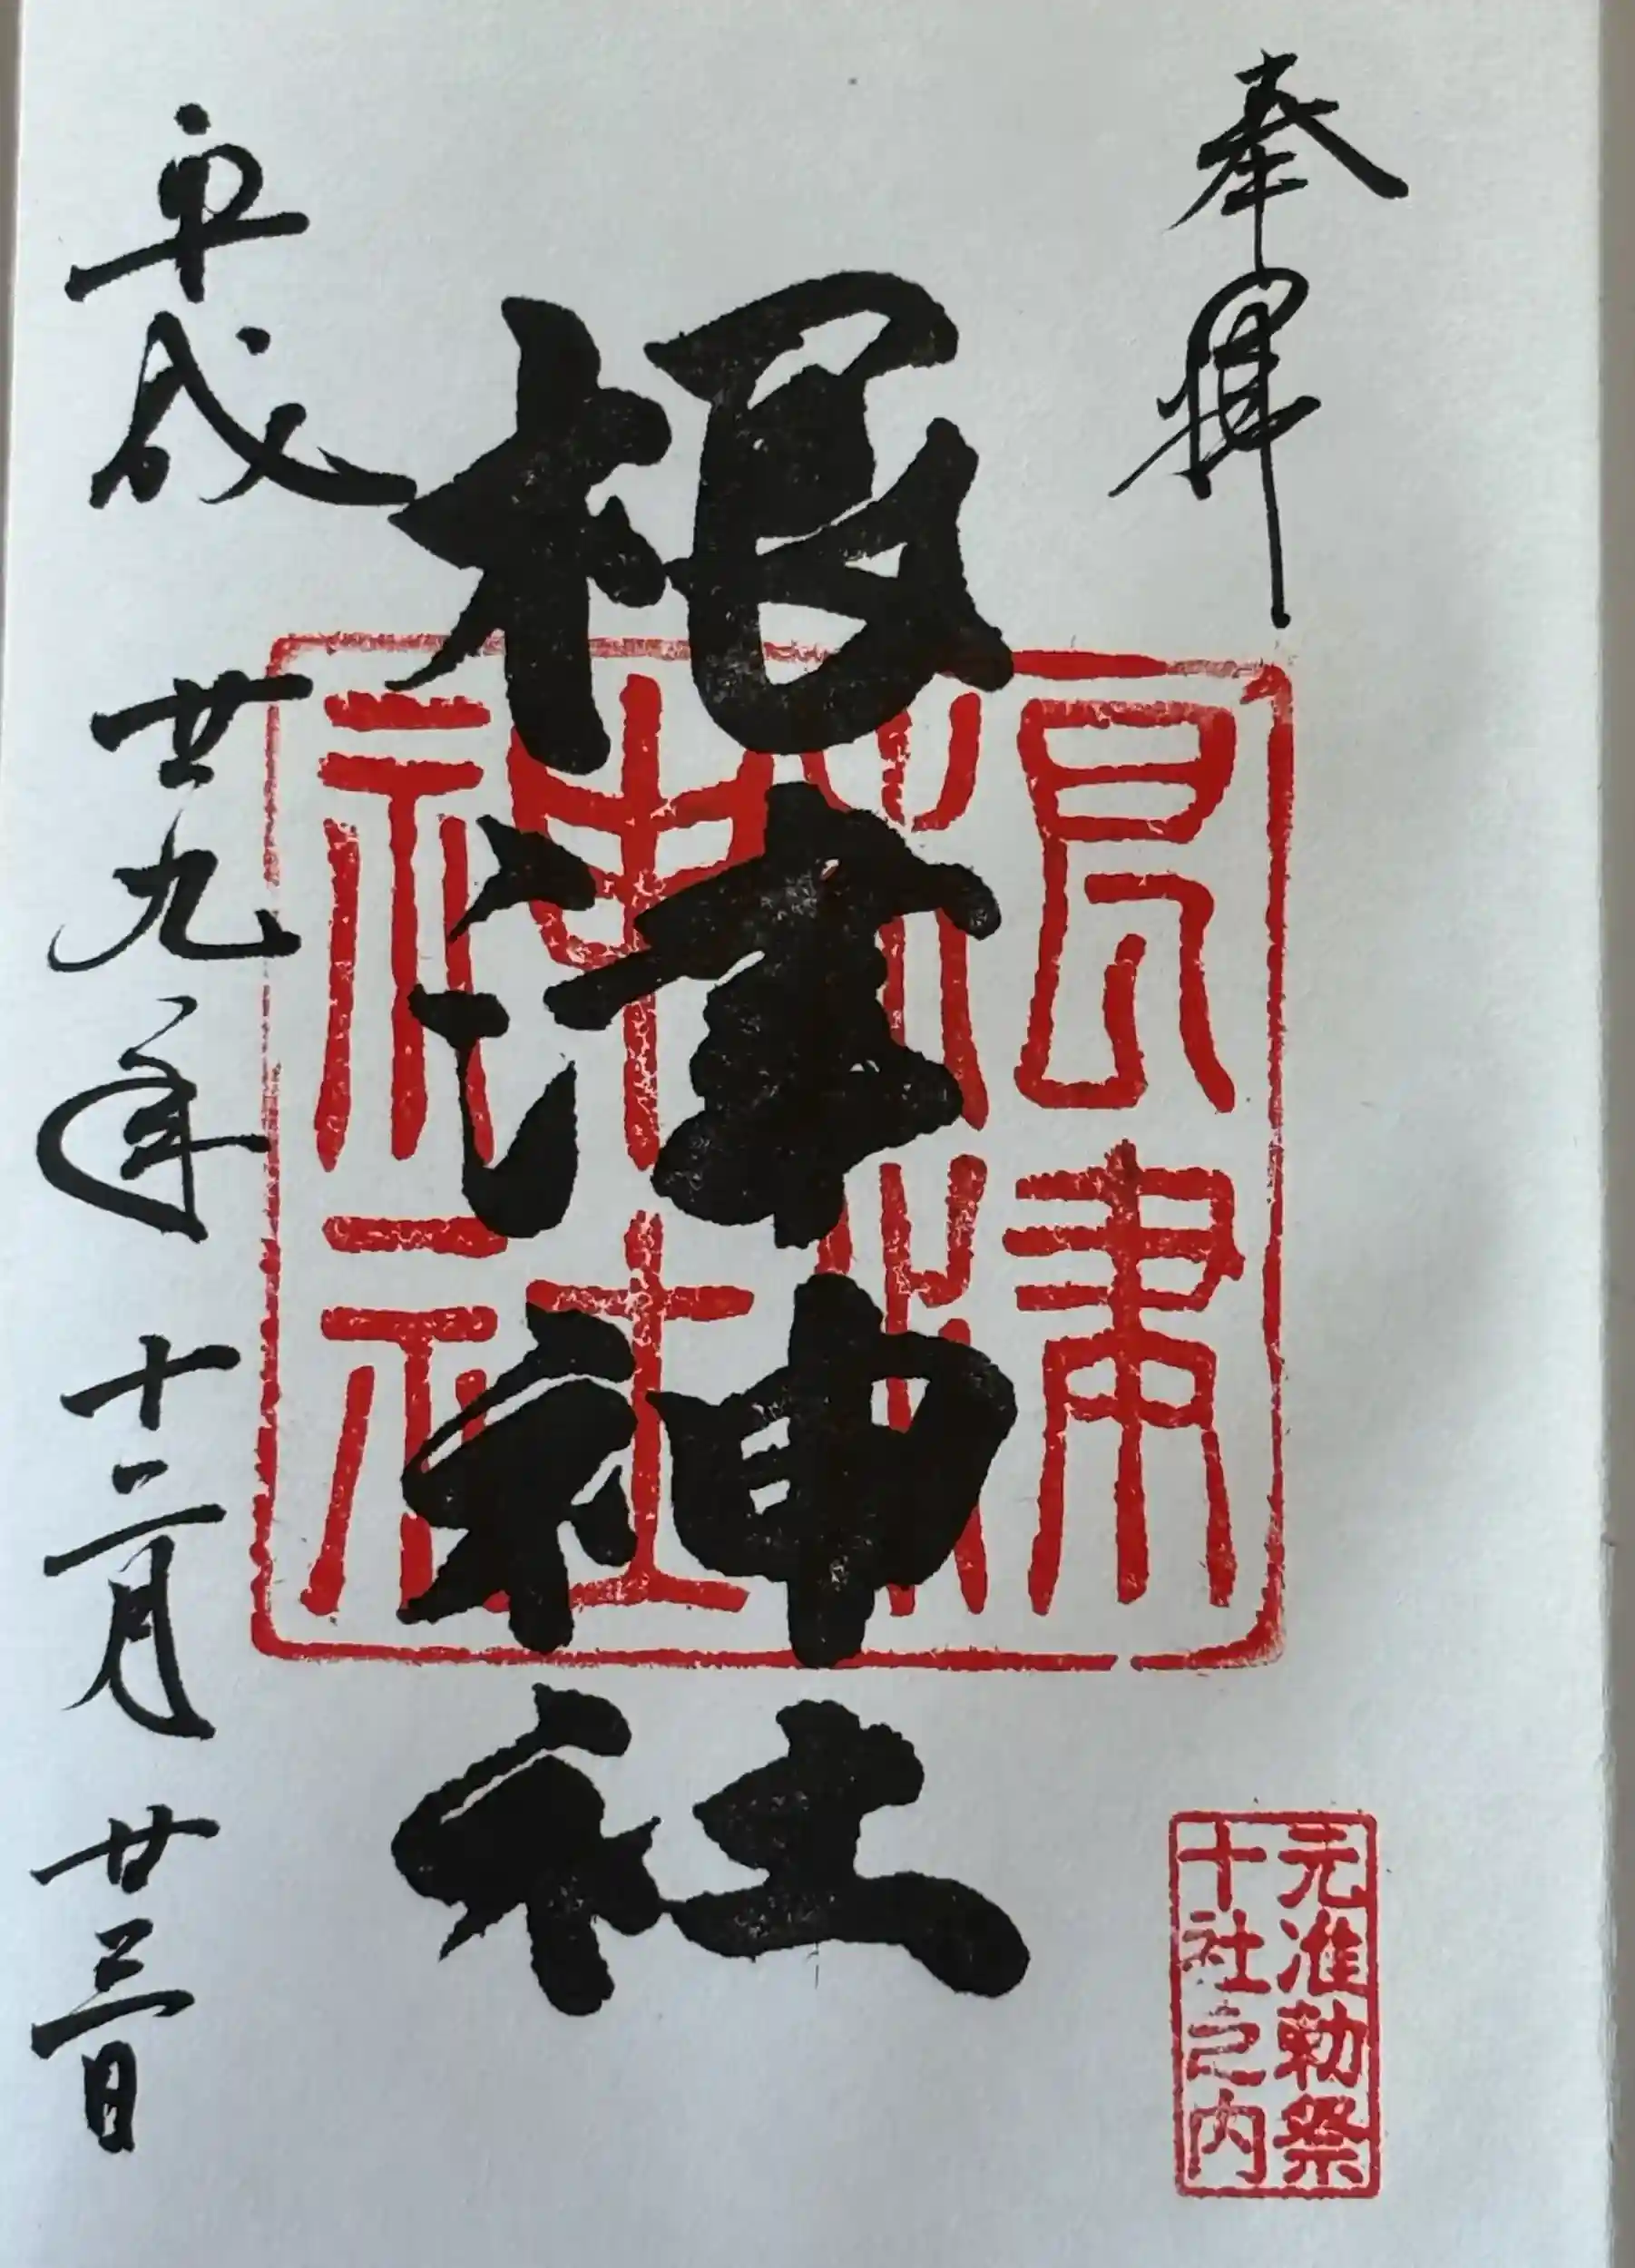 奉拝
元准勅祭
十社之内
根津神社
根津
神社
平成廿九年十二月廿三日